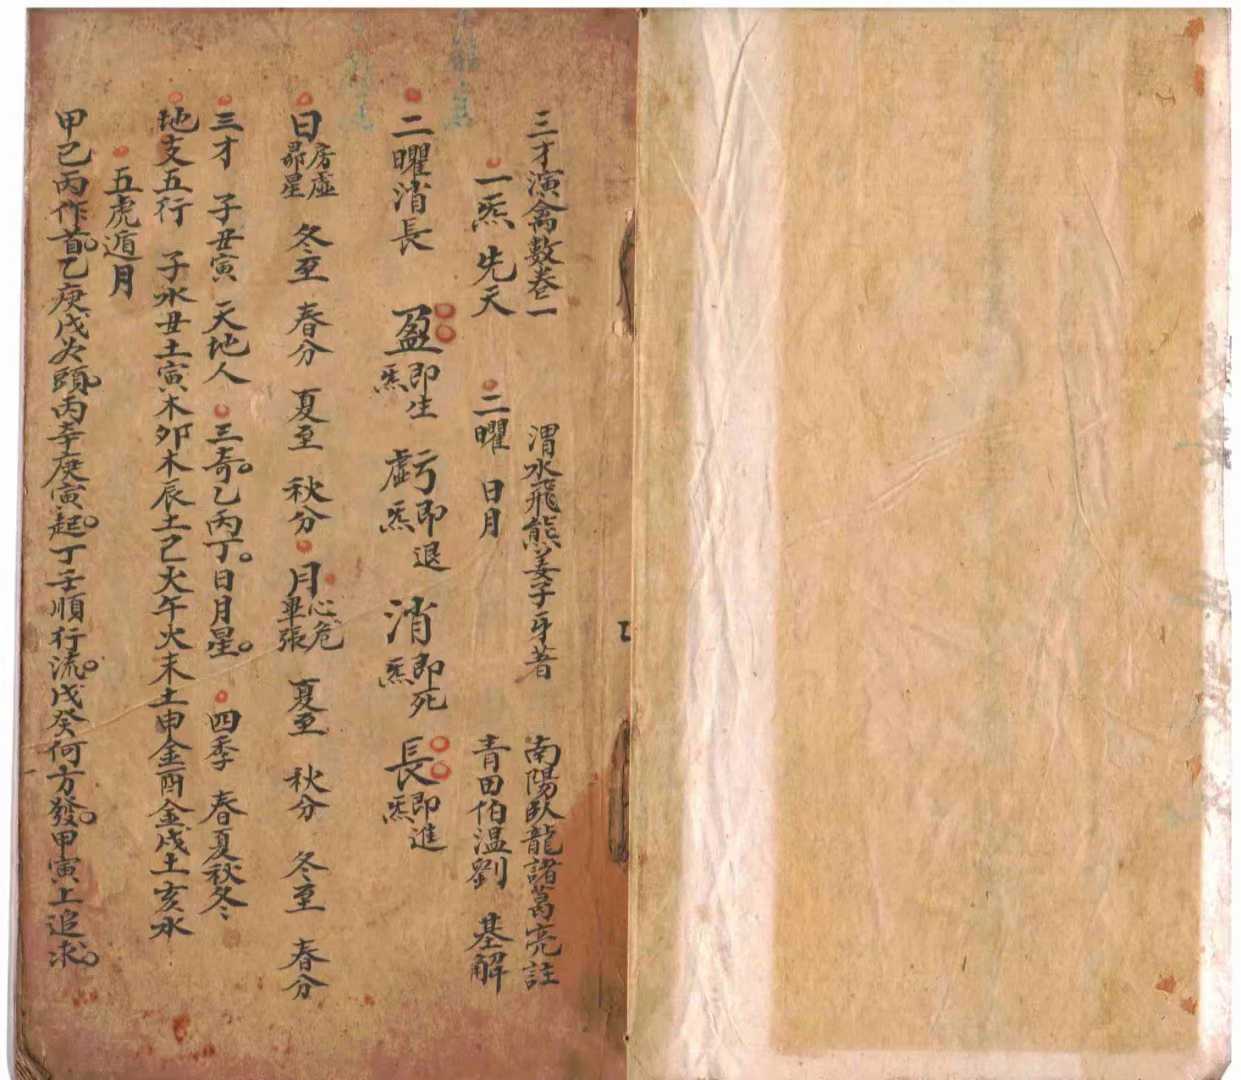 三才演禽數卷一 渭水飛熊姜子牙著 南陽臥龍諸葛亮註
一炁先天 二曜 日月 青田伯溫劉 基解
二曜消長 盈即生炁 虧即退炁 消即死炁 長即進炁
日房虛昴星 冬至 春分 夏至 秋分 月心危畢張 夏至 秋分 冬至 春分
三才 子丑寅 天地人 三奇乙丙丁日月星 四季 春夏秋冬
地支五行 子水丑土寅木卯木辰土巳火午火未土申金酉金戌土亥水
五虎遁月
甲己丙作首乙庚戊為頭丙辛庚寅起丁壬順行流戊癸何方發甲寅上追求